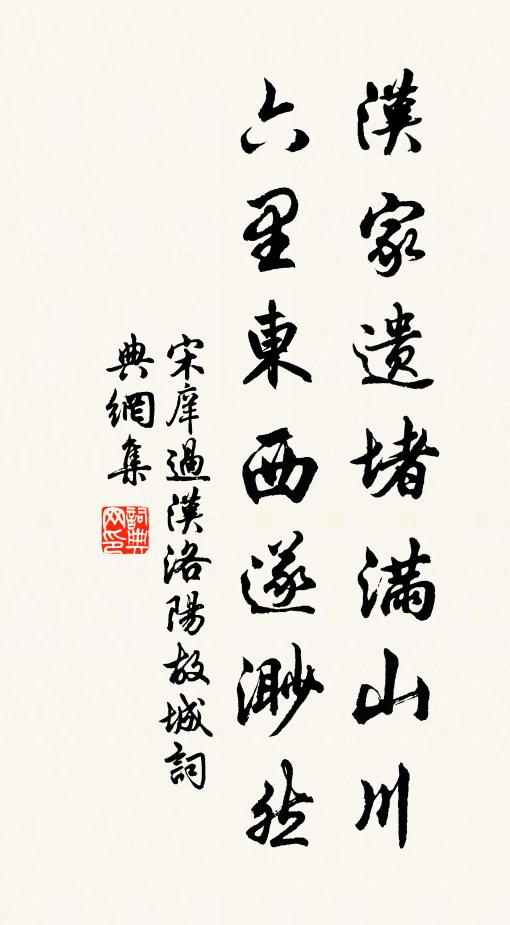 漢家遺堵滿山川
六里東西遂渺然
宋庠過漢洛陽故城詞
典網集
詞典
网印